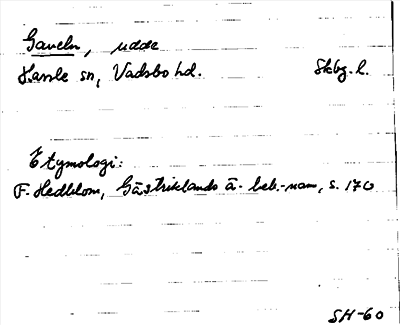 Gaveln, udde
Hassle sn, Vadsbo hd. Skbg. l.
Etymologi:
F. Hedblom, Gästriklands ä. beb.-namn, s. 170
SH-60